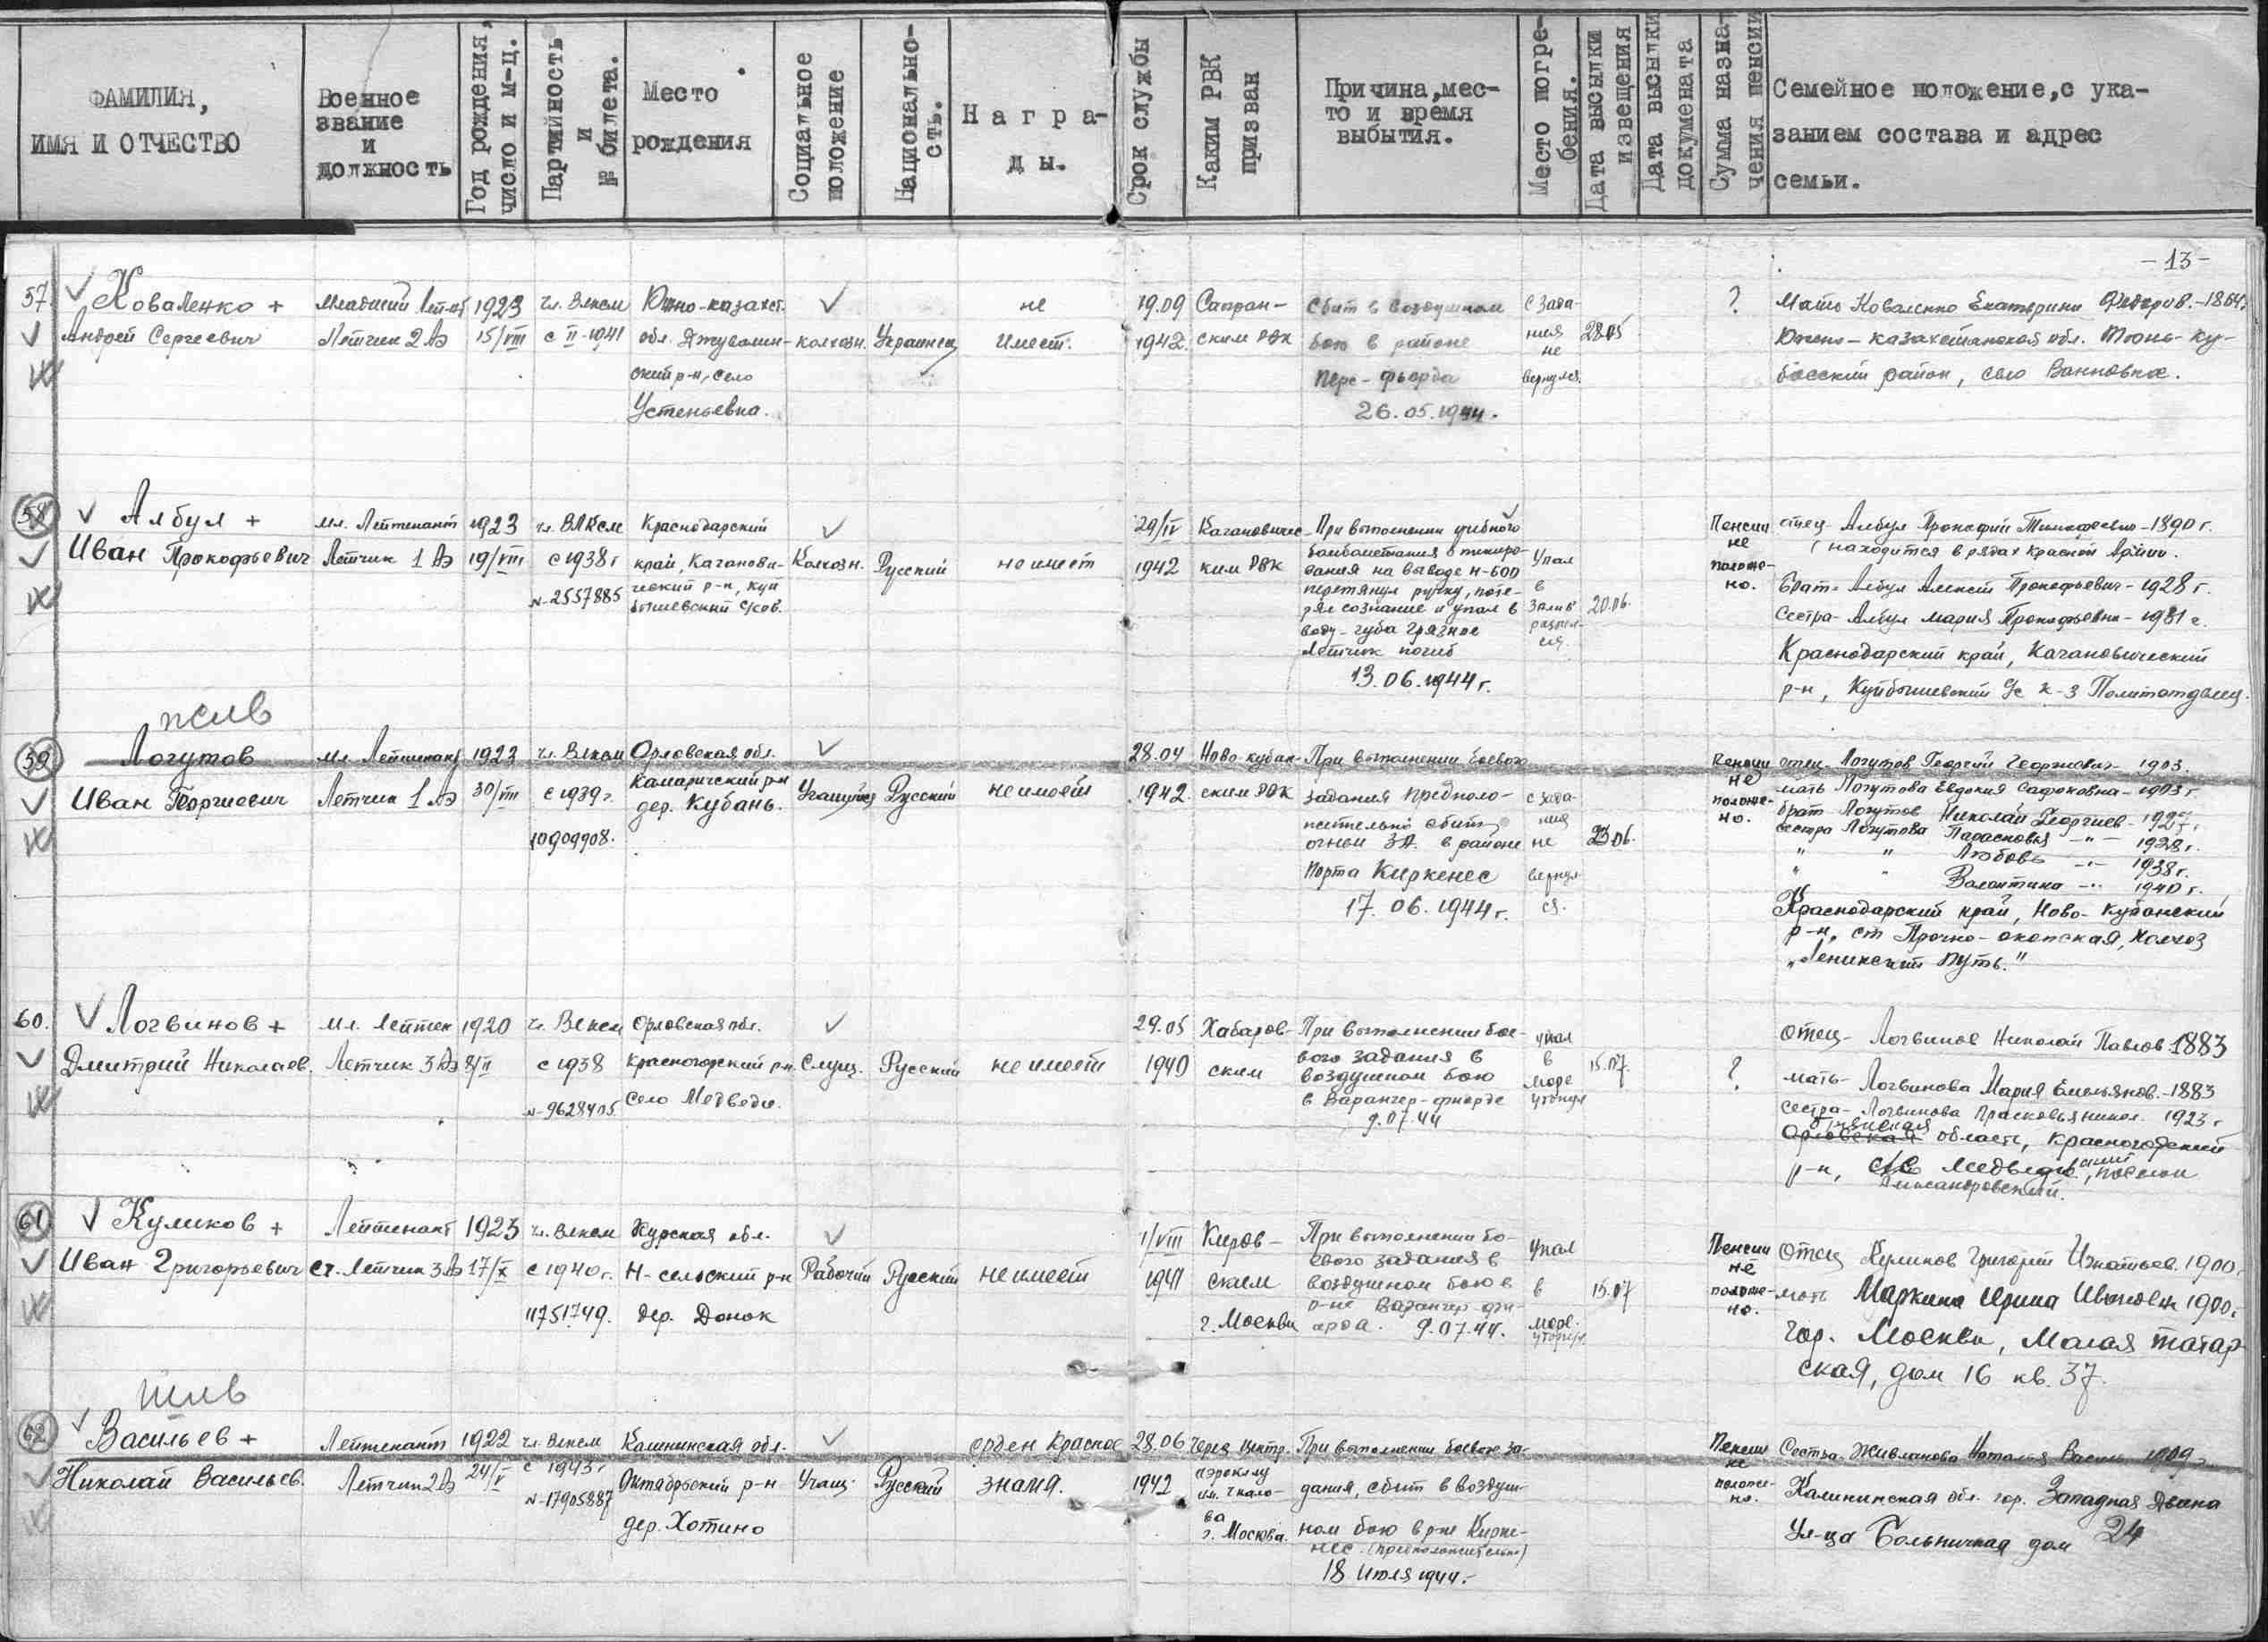 ФАМИЛИЯ,
ИМЯ И ОТЧЕСТВО
Военное
звание
и
должность
Год рождения,
число и м-ц.
Партийность
и
№ билета.
Место
рождения
Социальное
положение
Национально-
сть.
Награ-
ды.
Срок службы
Каким РВК
призван
Причина, мес-
то и время
выбытия.
Место погре-
бения.
Дата высылки
извещения
Дата высылки
докумената
Сумма назна-
чения пенсии
Семейное положение, с ука-
занием состава и адрес
семьи.
-13-
57.
Коваленко +
Андрей Сергеевич
Младший Лейт-нт
Летчик 2 АЭ
1923
15/VIII
чл. Влксм
с II-1941
Южно-казахст.
обл. Джувалин-
ский р-н, село
Устеньевка.
колхозн.
Украинец
не
имеет.
19.09
1942.
ским РВК
Сбит в воздушном
бою в районе
Перс-фьорда
26.05.1944.
с зада-
ния
не
вернулся.
28.05
?
Мать Коваленко Екатерина Федоров.-1864.
Южно-казахстанская обл. Тюль-ку-
басский район, село Ванновка.
58
Албул +
Иван Прокофьевич
мл. Лейтенант
Летчик 1 АЭ
1923
19/VIII
чл. ВЛКСМ
с 1938 г
N-2557885
Краснодарский
край, Каганови-
ческий р-н, куй
бышевский с/сов.
Колхозн.
Русский
не имеет
29/IV
1942
Кагановичес-
ким РВК
При выполнении учебного
бомбометания с пикиро-
вания на выводе Н-600
перетянул ручку, поте-
рял сознание и упал в
воду - губа Грязная
Летчик погиб
13.06.1944 г.
Упал
в
залив
20.06.
Пенсии
не
положе-
но.
отец - Албул Прокофий Тимофеевич - 1890 г.
(находится в рядах Красной Армии.
брат - Албул Алексей Прокофьевич - 1928 г.
Сестра - Албул Мария Прокофьевна - 1931 г.
Краснодарский край, Кагановический
р-н, Куйбышевский с/с к-з Политотделец.
59
Логутов
Иван Георгиевич
мл. Лейтенант
Летчик 1 АЭ
1923
30/VIII
чл. Влксм
с 1939 г.
10909908.
Орловская обл.
Камаричский р-н
дер. Кубань.
Учащийся
Русский
не имеет
28.04
1942.
Ново-кубан-
ским РВК
При выполнении боевого
задания предполо-
жительно сбит
огнем ЗА. в районе
Порта Киркенес
17.06.1944 г.
с зада-
ния
не
вернул-
ся.
23.06.
Пенсии
не
положе-
но.
отец - Логутов Георгий Георгиевич - 1903.
мать Логутова Евдокия Сафоновна - 1903 г.
брат Логутов Николай Георгиев - 1927 г.
сестра Логутова Парасковья -"- 1928 г.
" " Любовь -"- 1938 г.
" " Валентина -"- 1940 г.
Краснодарский край, Ново-кубанский
р-н, ст Прочно-окопская, колхоз
„Ленинский путь."
60.
Логвинов +
Дмитрий Николаев.
Мл. Лейтен
Летчик 3 АЭ
1920
8/II
чл. Влксм
с 1938
N-9628405
Орловская обл.
Красногорский р-н.
село Медведи.
Служ.
Русский
не имеет
29.05
1940
Хабаров-
ским
При выполнении бое-
вого задания в
воздушном бою
в Варангер-фиорде
9.07.44
упал
в
море
утонул
15.07.
?
отец - Логвинов Николай Павлов 1883
мать - Логвинова Мария Емельянов. - 1883
сестра - Логвинова Прасковья никол. 1923 г
Брянская
Орловская область, Красногорский
р-н, с/с Медведевский, поселок
Александровский.
61
Куликов +
Иван Григорьевич
Лейтенант
Ст. Летчик 3 АЭ
1923
17/X
чл. Влксм
с 1940 г.
11751749.
Курская обл.
Н-сельский р-н
дер. Донок
Рабочий
Русский
не имеет
1/VIII
1941
Киров-
ским
г. Москвы
При выполнении бо-
евого задания в
воздушном бою в
р-не Варангер-фи-
орда. 9.07.44.
Упал
в
море.
утонул.
15.07
Пенсии
не
положе-
но.
Отец Куликов Григорий Игнатьев. 1900.
мать Маркина Ирина Ивановн 1900 г.
гор. Москва, Малая татар-
ская, дом 16 кв. 37.
62
Васильев +
Николай Васильев.
Лейтенант
Летчик 2 АЭ
1922
24/V
чл. Влксм
с 1943 г
N-17905887
Калининская обл.
Октябрьский р-н
дер. Хотино
Учащ.
Русский
орден Красное
знамя.
28.06
1942
Через центр.
аэроклуб
им. Чкало-
ва
г. Москва.
При выполнении боевого за-
дания, сбит в воздуш-
ном бою в р-не Кирке-
нес (предположительно)
18 июля 1944.-
Пенсии
не
положе-
но.
Калининская обл. гор. Западная Двина
Ул-ца Больничная дом 24